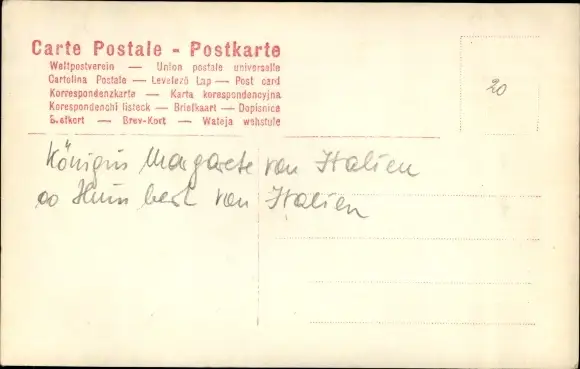 Carte Postale - Postkarte
Weltpostverein — Union postale universelle
Cartolina Postale — Levelező Lap — Post card
Korrespondenzkarte — Karta korespondencyjna
Korespondenchi listeck — Briefkaart — Dopisnice
Brefkort — Brev-Kort — Wateja wehstule
20
Königin Margarete von Italien
∞ Humbert von Italien